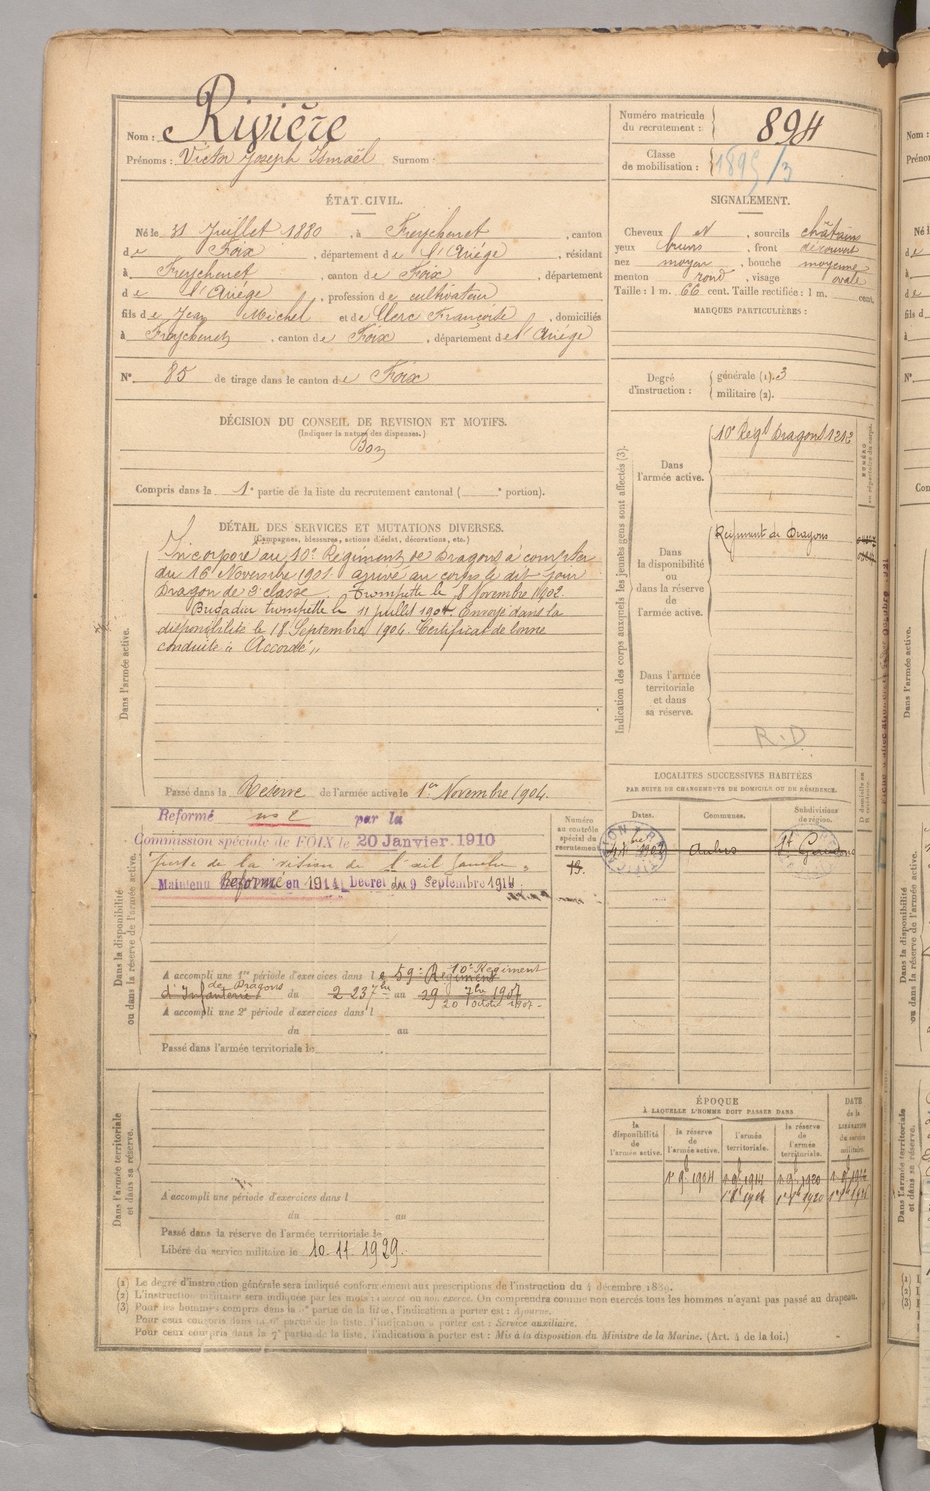 Nom : Rivière
Prénoms : Victor Joseph Ismaël Surnom :
Numéro matricule du recrutement : 894
Classe de mobilisation : 1899/3
ÉTAT CIVIL.
Né le 31 Juillet 1880, à Freychenet, canton
de Foix, département de l'Ariége, résidant
à Freychenet, canton de Foix, département
de l'Ariége, profession de cultivateur
fils de Jean Michel et de Clerc Françoise, domiciliés
à Freychenet, canton de Foix, département de l'Ariége
N° 85 de tirage dans le canton de Foix
SIGNALEMENT.
Cheveux et, sourcils châtains
yeux bruns, front découvert
nez moyen, bouche moyenne
menton rond, visage ovale
Taille : 1 m. 66 cent. Taille rectifiée : 1 m. cent.
MARQUES PARTICULIÈRES :
Degré d'instruction : générale (1). 3
militaire (2).
DÉCISION DU CONSEIL DE REVISION ET MOTIFS.
(Indiquer la nature des dispenses.)
Bon
Compris dans la 1e partie de la liste du recrutement cantonal ( e portion).
DÉTAIL DES SERVICES ET MUTATIONS DIVERSES.
(Campagnes, blessures, actions d'éclat, décorations, etc.)
Dans l'armée active.
Incorporé au 10e Régiment de Dragons à compter
du 16 Novembre 1901 arrivé au corps le dit jour
Dragon de 2e classe. Trompette le 8 Novembre 1902.
Brigadier trompette le 11 juillet 1904. Envoyé dans la
disponibilité le 18 Septembre 1904. Certificat de bonne
conduite " Accordé "
Passé dans la Réserve de l'armée active le 1er Novembre 1904.
Indication des corps auxquels les jeunes gens sont affectés (3).
Dans l'armée active.
10e Régt Dragons 1212
Dans la disponibilité ou dans la réserve de l'armée active.
Régiment de Dragons
Dans l'armée territoriale et dans sa réserve.
R.D
Dans la disponibilité ou dans la réserve de l'armée active.
Réformé no 2 par la
Commission spéciale de FOIX le 20 Janvier 1910
Perte de la vision de l'œil gauche "
Maintenu Réformé en 1914, Décret du 9 Septembre 1914
Numéro au contrôle spécial du recrutement
A accompli une 1re période d'exercices dans le 59e Régiment 10e Régiment
d'Infanterie de Dragons du 2 23 7bre au 29 7bre 1907 20 Octobre 1907
A accompli une 2e période d'exercices dans l
du au
Passé dans l'armée territoriale le
LOCALITÉS SUCCESSIVES HABITÉES
PAR SUITE DE CHANGEMENTS DE DOMICILE OU DE RÉSIDENCE.
Dates. Communes. Subdivisions de région.
Aulus St Gaudens
Dans l'armée territoriale et dans sa réserve.
A accompli une période d'exercices dans l
du au
Passé dans la réserve de l'armée territoriale le
Libéré du service militaire le 10.11.1929.
ÉPOQUE
À LAQUELLE L'HOMME DOIT PASSER DANS
la disponibilité de l'armée active. la réserve de l'armée active. l'armée territoriale. la réserve de l'armée territoriale. DATE de la LIBÉRATION du service militaire.
(1) Le degré d'instruction générale sera indiqué conformément aux prescriptions de l'instruction du 4 décembre 1889.
(2) L'instruction militaire sera indiquée par les mots : exercé ou non exercé. On comprendra comme non exercés tous les hommes n'ayant pas passé au drapeau.
(3) Pour les hommes compris dans la 5e partie de la liste, l'indication à porter est : Ajourné.
Pour ceux compris dans la 6e partie de la liste, l'indication à porter est : Service auxiliaire.
Pour ceux compris dans la 7e partie de la liste, l'indication à porter est : Mis à la disposition du Ministre de la Marine. (Art. 4 de la loi.)